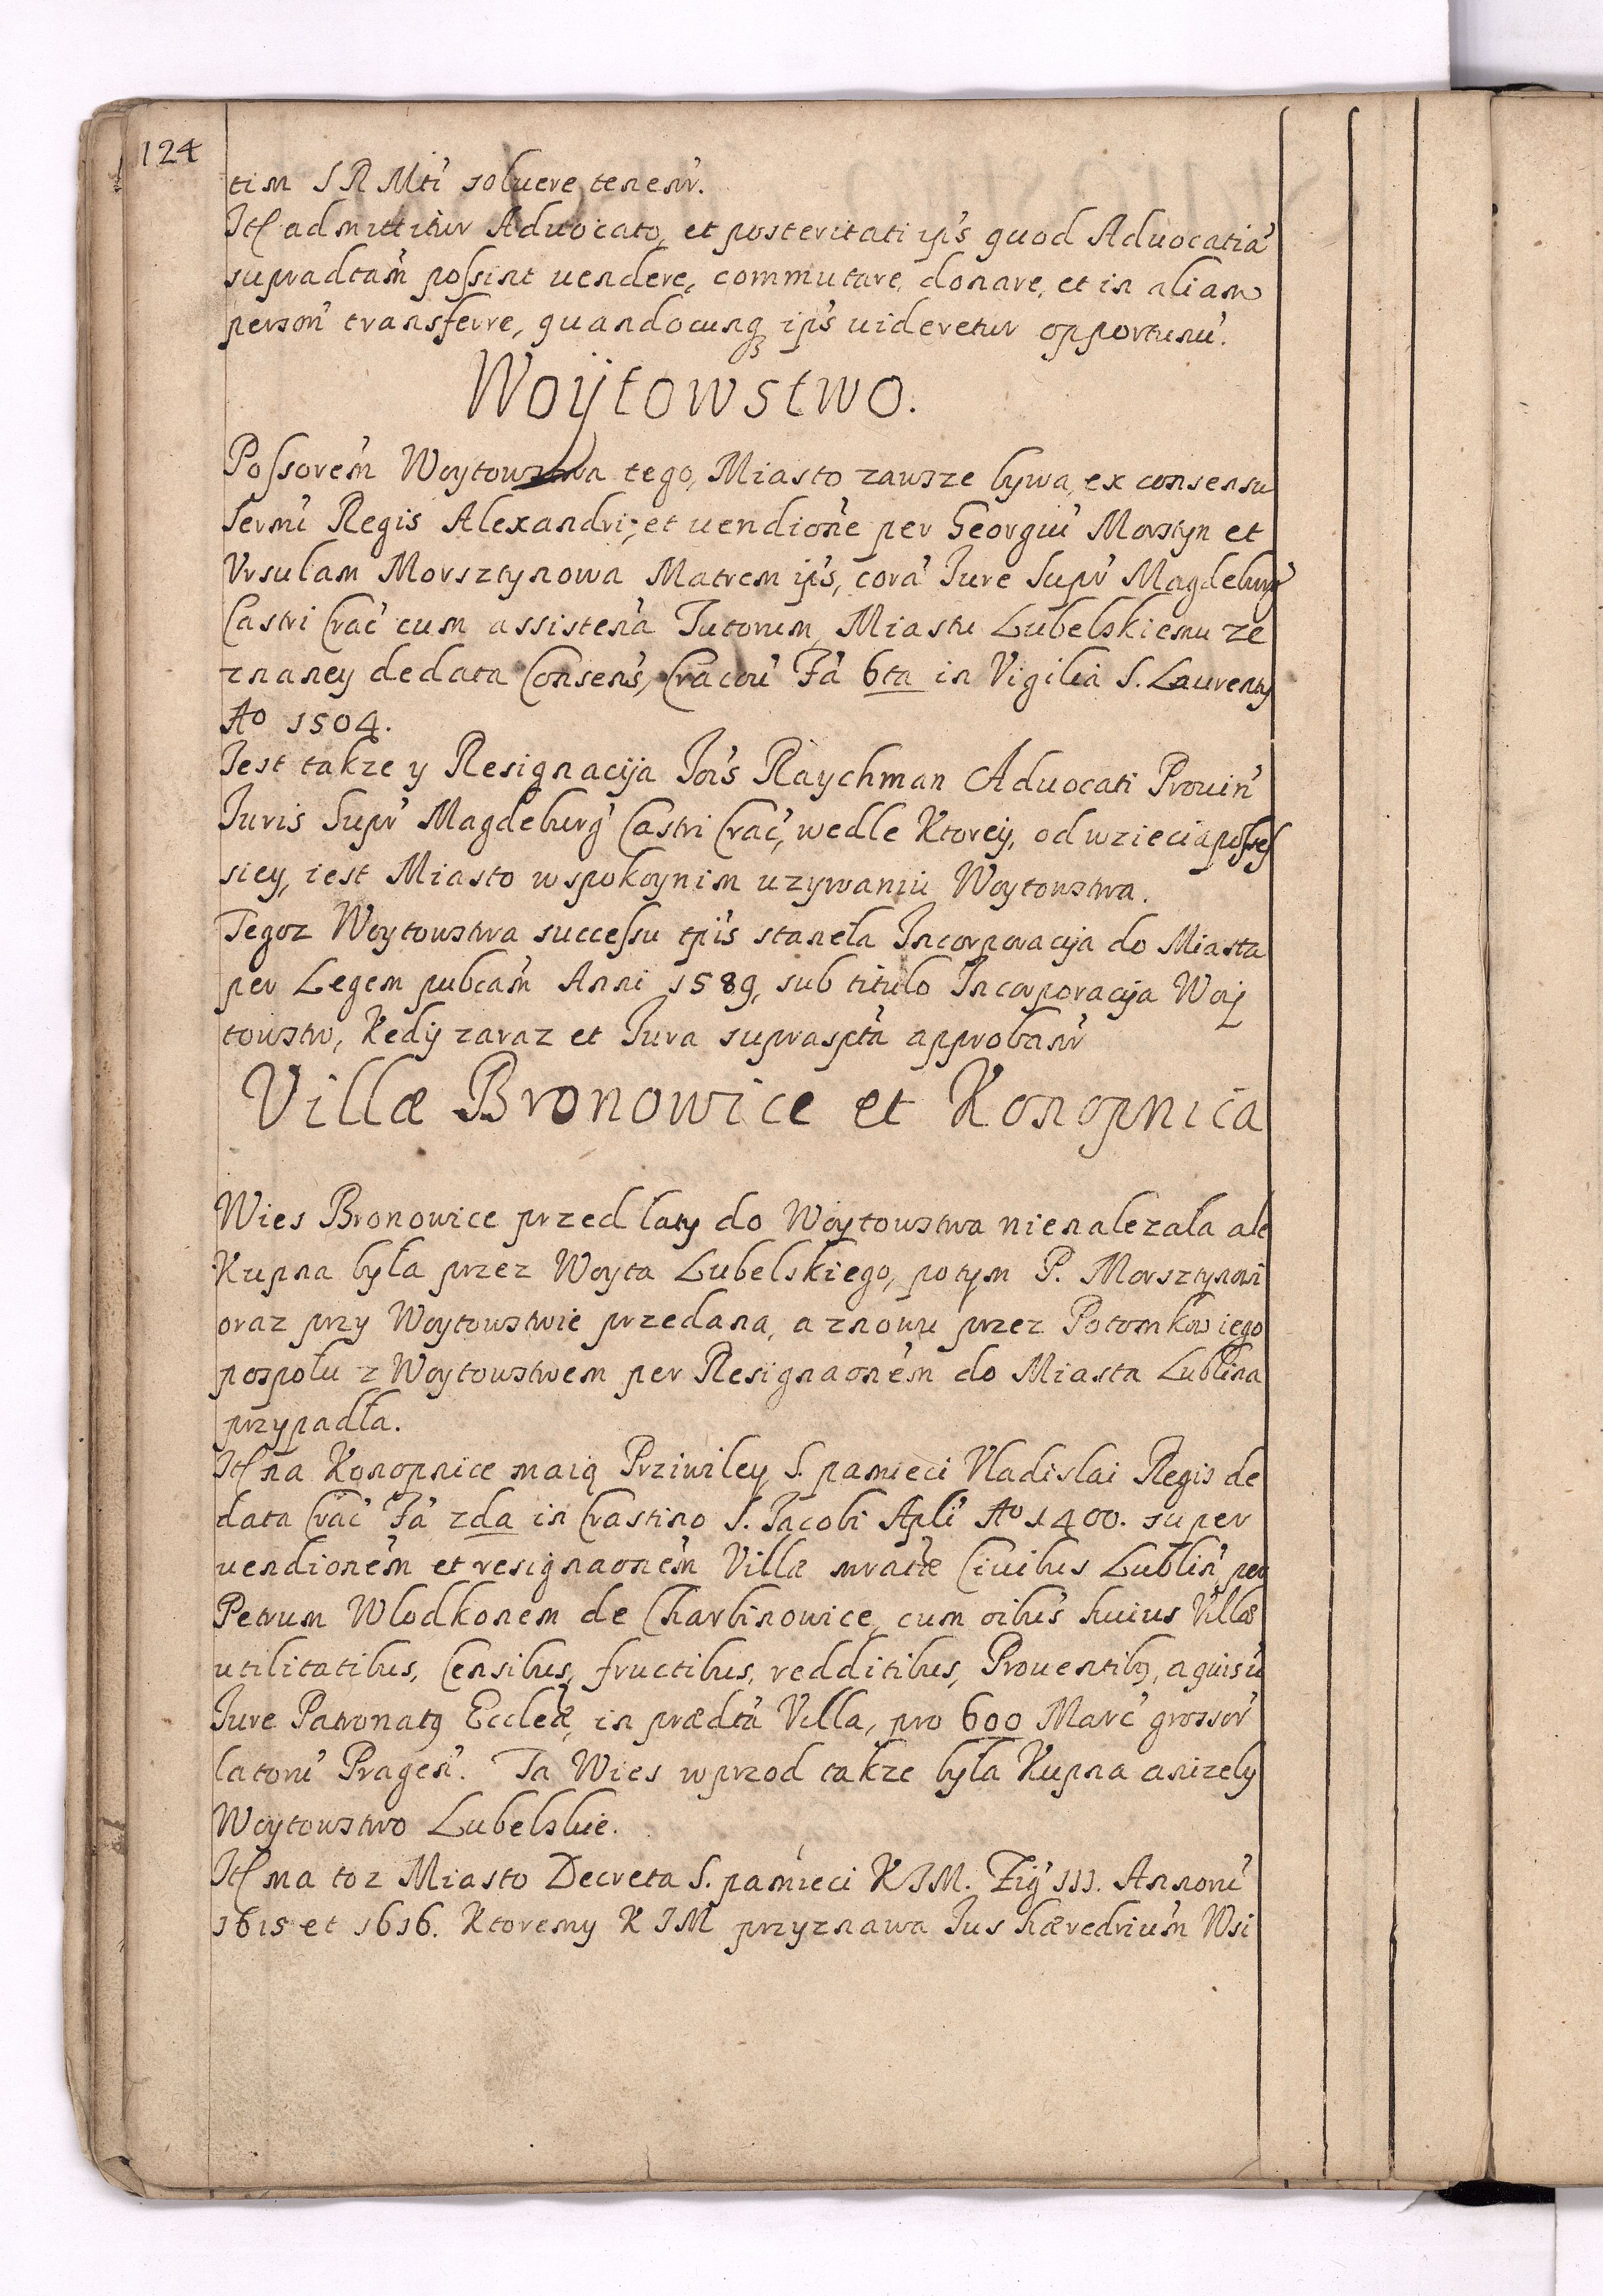 124
tim S R Mti soluere tenen'r.
Jt admittitur Aduocato, et posteritati ip's quod Aduocatia'
supradtam' possint uendere, commutare, donare, et in aliam
person' transferre, quandocunq3 ip's uideretur opportunu'.
Woÿtowstwo.
Possorem' Woytowstwa tego, Miasto zawsze bywa, ex consensu
Sermi' Regis Alexandri, et uendione' per Georgiu' Morstyn et
Vrsulam Morsztynowa Matrem ip's, cora' Jure Supr' Magdeburg'
Castri Crac' cum assistena' Tutorum, Miastu Lubelskiemu ze
znaney dedata Consens', Cracou' Fa' 6ta in Vigilia S. Laurenty
Ao 1504.
Jest takze y Resignacija Jois' Raychman Aduocati Prouin'
Juris Supr' Magdeburg' Castri Crac', wedle Ktoreÿ, od wzieciaposses
siey, iest Miasto wspokoynim uzywaniu Woytowstwa.
Tegoz Woytowstwa successu tpis' staneła Jncorporacija do Miasta
per Legem pubcam' Anni 1589, sub titulo Jncorporacija Woÿ
towstw, Kedÿ zaraz et Jura suprascpta' approban'r
Villæ Bronowice et Konopnica
Wies Bronowice przed laty do Woytowstwa nienalezała ale
Kupna była przez Woyta Lubelskiego, potym P. Morsztynowi
oraz przy Woytowstwie przedana, a znowu przez Potomkow iego
pospołu z Woytowstwem per Resignaonem' do Miasta Lublina
przypadła.
Jt na Konopnice maią Prziwiley S. pamieci Vladislai Regis de
data Crac' Fa' 2da in Crastino S. Jacobi Apli' Ao 1400. super
uendionem' et resignaonem' Villæ mratæ' Ciuibus Lublin' per
Petrum Wlodkonem de Charbinowice, cum oibus' huius Villæ
utilitatibus, Censibus, fructibus, redditibus, Prouentib9, aquis u'
Jure Patronat9 Eccleæ', in prædta' Villa, pro 600 Marc' grossor'
latoru' Pragen'. Ta Wies wprzod takze była Kupna anizely
Woytowstwo Lubelskie.
Jt ma toz Miasto Decreta S. pamieci K J M. Zig' III. Annoru'
1615 et 1616. Ktoremy K J M przyznawa Jus hæredrium' Wsi